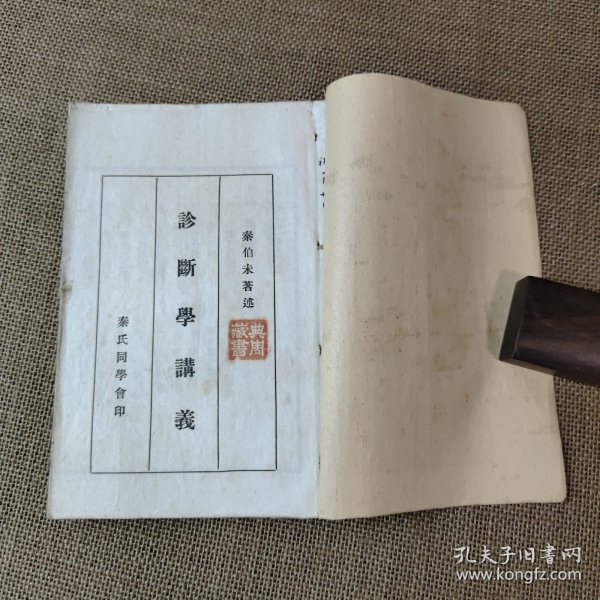 秦伯未著述
診斷學講義
秦氏同學會印
典周
藏書
孔夫子旧书网
www.kongfz.com